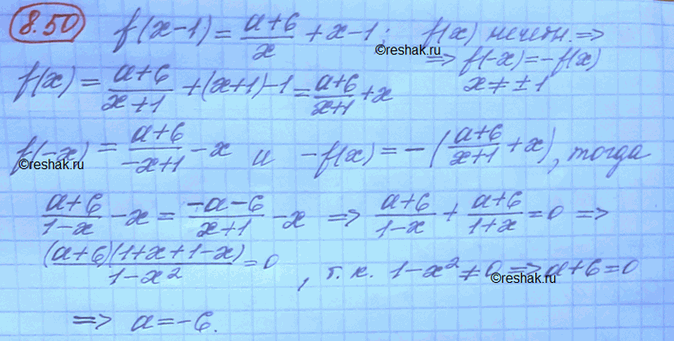 8.50 f(x-1) = (a+6)/x + x-1; f(x) нечетн. ⇒
©reshak.ru
⇒ f(-x) = -f(x)
f(x) = (a+6)/(x+1) + (x+1)-1 = (a+6)/(x+1) + x x ≠ ±1
f(-x) = (a+6)/(-x+1) - x и -f(x) = -((a+6)/(x+1) + x), тогда
©reshak.ru
©reshak.ru
(a+6)/(1-x) - x = (-a-6)/(x+1) - x ⇒ (a+6)/(1-x) + (a+6)/(1+x) = 0 ⇒
((a+6)(1+x+1-x))/(1-x²) = 0, т.к. 1-x² ≠ 0 ⇒ a+6 = 0
©reshak.ru
⇒ a = -6.